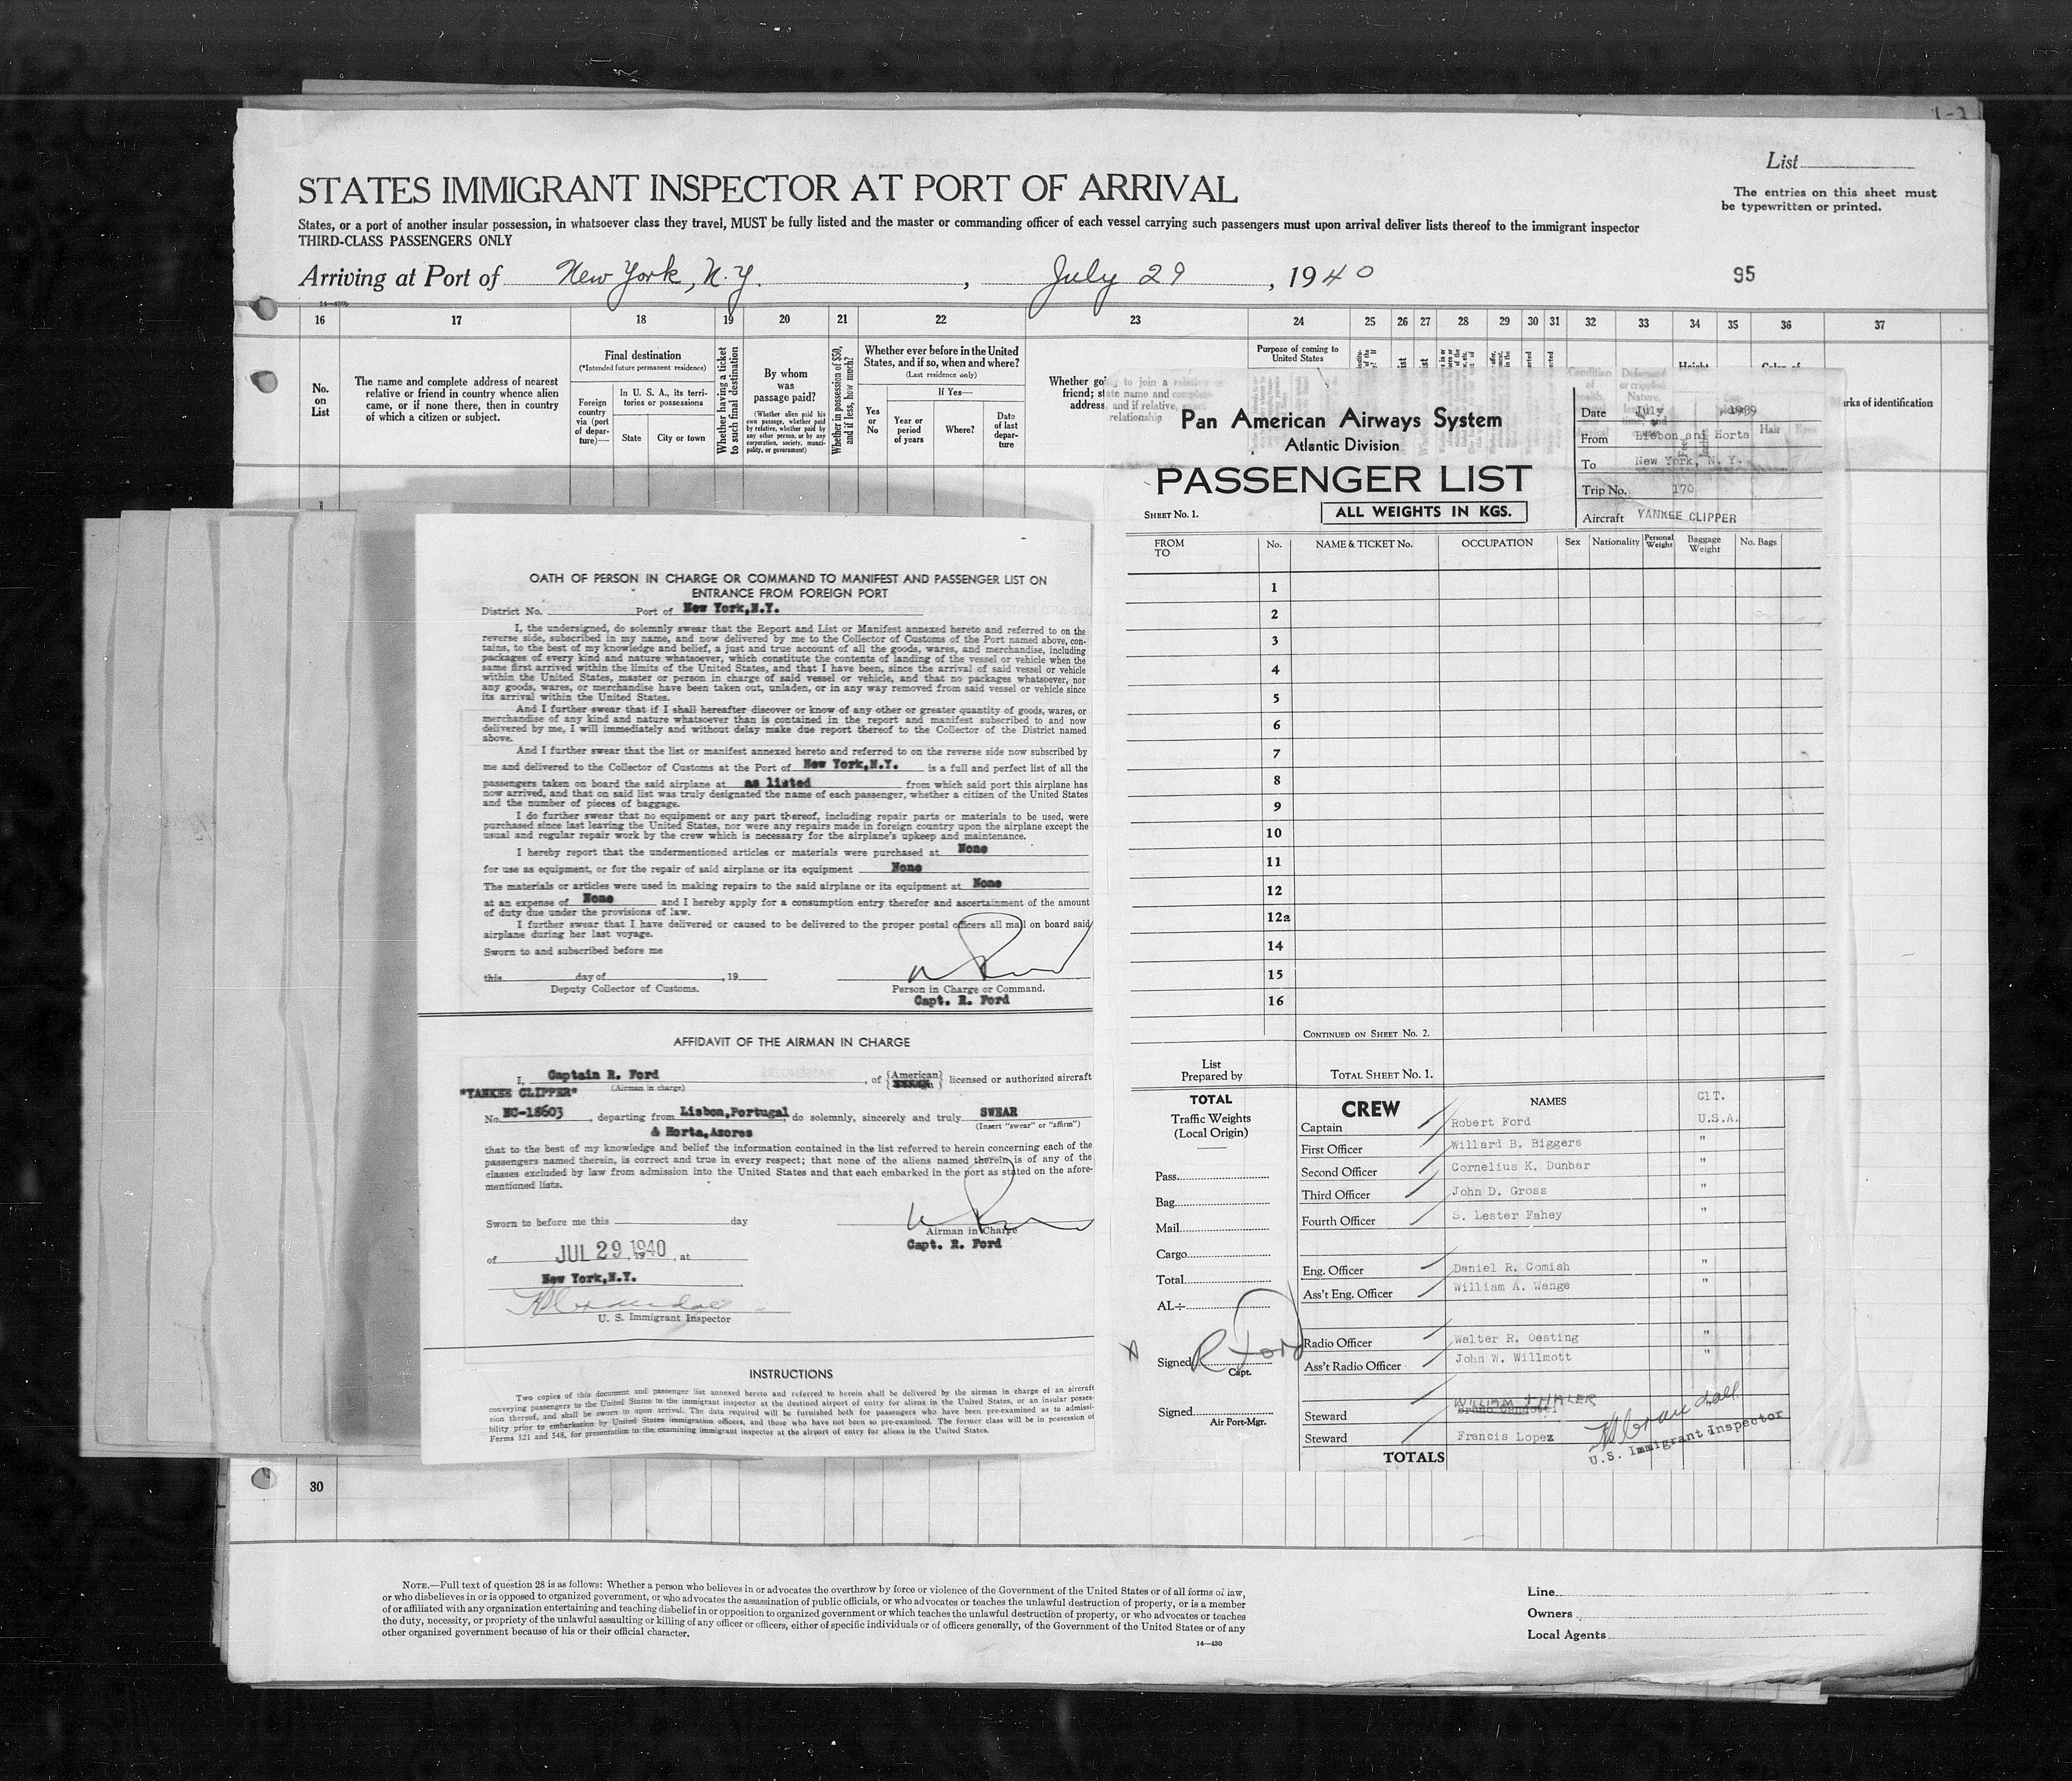 List
The entries on this sheet must
be typewritten or printed.
STATES IMMIGRANT INSPECTOR AT PORT OF ARRIVAL
States, or a port of another insular possession, in whatsoever class they travel, MUST be fully listed and the master or commanding officer of each vessel carrying such passengers must upon arrival deliver lists thereof to the immigrant inspector
THIRD-CLASS PASSENGERS ONLY
Arriving at Port of New York, N.Y. , July 29 , 1940
95
16 17 18 19 20 21 22 23 24 25 26 27 28 29 30 31 32 33 34 35 36 37
No. on List
The name and complete address of nearest
relative or friend in country whence alien
came, or if none there, then in country
of which a citizen or subject.
Final destination
(*Intended future permanent residence)
Foreign country via (port of departure)—
In U. S. A., its territories or possessions
State
City or town
Whether having a ticket to such final destination
By whom was passage paid?
(Whether alien paid his own passage, whether paid by relative, whether paid by any other person, or by any corporation, society, municipality, or government)
Whether in possession of $50, and if less, how much?
Whether ever before in the United
States, and if so, when and where?
(Last residence only)
Yes or No
If Yes—
Year or period of years
Where?
Date of last departure
Whether going to join a relative or
friend; state name and complete
address, and if relative,
relationship
Purpose of coming to
United States
Height
marks of identification
1
OATH OF PERSON IN CHARGE OR COMMAND TO MANIFEST AND PASSENGER LIST ON
ENTRANCE FROM FOREIGN PORT
District No. Port of New York,N.Y.
I, the undersigned, do solemnly swear that the Report and List or Manifest annexed hereto and referred to on the
reverse side, subscribed in my name, and now delivered by me to the Collector of Customs of the Port named above, con-
tains, to the best of my knowledge and belief, a just and true account of all the goods, wares, and merchandise, including
packages of every kind and nature whatsoever, which constitute the contents of landing of the vessel or vehicle when the
same first arrived within the limits of the United States, and that I have been, since the arrival of said vessel or vehicle
within the United States, master or person in charge of said vessel or vehicle, and that no packages whatsoever, nor
any goods, wares, or merchandise have been taken out, unladen, or in any way removed from said vessel or vehicle since
its arrival within the United States.
And I further swear that if I shall hereafter discover or know of any other or greater quantity of goods, wares, or
merchandise of any kind and nature whatsoever than is contained in the report and manifest subscribed to and now
delivered by me, I will immediately and without delay make due report thereof to the Collector of the District named
above.
And I further swear that the list or manifest annexed hereto and referred to on the reverse side now subscribed by
me and delivered to the Collector of Customs at the Port of New York,N.Y. is a full and perfect list of all the
passengers taken on board the said airplane at as listed from which said port this airplane has
now arrived, and that on said list was truly designated the name of each passenger, whether a citizen of the United States
and the number of pieces of baggage.
I do further swear that no equipment or any part thereof, including repair parts or materials to be used, were
purchased since last leaving the United States, nor were any repairs made in foreign country upon the airplane except the
usual and regular repair work by the crew which is necessary for the airplane's upkeep and maintenance.
I hereby report that the undermentioned articles or materials were purchased at None
for use as equipment, or for the repair of said airplane or its equipment None
The materials or articles were used in making repairs to the said airplane or its equipment at None
at an expense of None and I hereby apply for a consumption entry therefor and ascertainment of the amount
of duty due under the provisions of law.
I further swear that I have delivered or caused to be delivered to the proper postal officers all mail on board said
airplane during her last voyage.
Sworn to and subscribed before me
this day of , 19
Deputy Collector of Customs.
Person in Charge or Command.
Capt. R. Ford
AFFIDAVIT OF THE AIRMAN IN CHARGE
I, Captain R. Ford , of {American} licensed or authorized aircraft
(Airman in charge)
"YANKEE CLIPPER"
No. NC-18603 , departing from Lisbon,Portugal do solemnly, sincerely and truly SWEAR
(Insert "swear" or "affirm")
& Horta,Azores
that to the best of my knowledge and belief the information contained in the list referred to herein concerning each of the
passengers named therein, is correct and true in every respect; that none of the aliens named therein is of any of the
classes excluded by law from admission into the United States and that each embarked in the port as stated on the afore-
mentioned lists.
Sworn to before me this day
Airman in Charge
Capt. R. Ford
of JUL 29 1940 , at
New York,N.Y.
U. S. Immigrant Inspector
INSTRUCTIONS
Two copies of this document and passenger list annexed hereto and referred to herein shall be delivered by the airman in charge of an aircraft
conveying passengers to the United States to the immigrant inspector at the destined airport of entry for aliens in the United States, or an insular posses-
sion thereof, and shall be sworn to upon arrival. The data required will be furnished both for passengers who have been pre-examined as to admissi-
bility prior to embarkation by United States immigration officers, and those who have not been so pre-examined. The former class will be in possession of
Forms 521 and 548, for presentation to the examining immigrant inspector at the airport of entry for aliens in the United States.
Pan American Airways System
Atlantic Division
PASSENGER LIST
SHEET No. 1.
ALL WEIGHTS IN KGS.
Date July 1939
From Lisbon and Horta
To New York, N. Y.
Trip No. 170
Aircraft YANKEE CLIPPER
FROM TO No. NAME & TICKET No. OCCUPATION Sex Nationality Personal Weight Baggage Weight No. Bags
1
2
3
4
5
6
7
8
9
10
11
12
12a
14
15
16
CONTINUED ON SHEET NO. 2.
List
Prepared by
TOTAL SHEET NO. 1.
TOTAL
Traffic Weights
(Local Origin)
Pass.
Bag.
Mail
Cargo
Total
AL÷
Signed R Ford
Capt.
Signed
Air Port-Mgr.
CREW NAMES CIT.
Captain Robert Ford U.S.A.
First Officer Willard B. Biggers "
Second Officer Cornelius K. Dunbar "
Third Officer John D. Gross "
Fourth Officer S. Lester Fahey "
Eng. Officer Daniel R. Comish "
Ass't Eng. Officer William A. Wange "
Radio Officer Walter R. Oesting "
Ass't Radio Officer John W. Willmott "
Steward WILLIAM THALER
Steward Francis Lopez
U.S. Immigrant Inspector
TOTALS
30
NOTE.—Full text of question 28 is as follows: Whether a person who believes in or advocates the overthrow by force or violence of the Government of the United States or of all forms of law,
or who disbelieves in or is opposed to organized government, or who advocates the assassination of public officials, or who advocates or teaches the unlawful destruction of property, or is a member
of or affiliated with any organization entertaining and teaching disbelief in or opposition to organized government or which teaches the unlawful destruction of property, or who advocates or teaches
the duty, necessity, or propriety of the unlawful assaulting or killing of any officer or officers, either of specific individuals or of officers generally, of the Government of the United States or of any
other organized government because of his or their official character.
14—430
Line
Owners
Local Agents